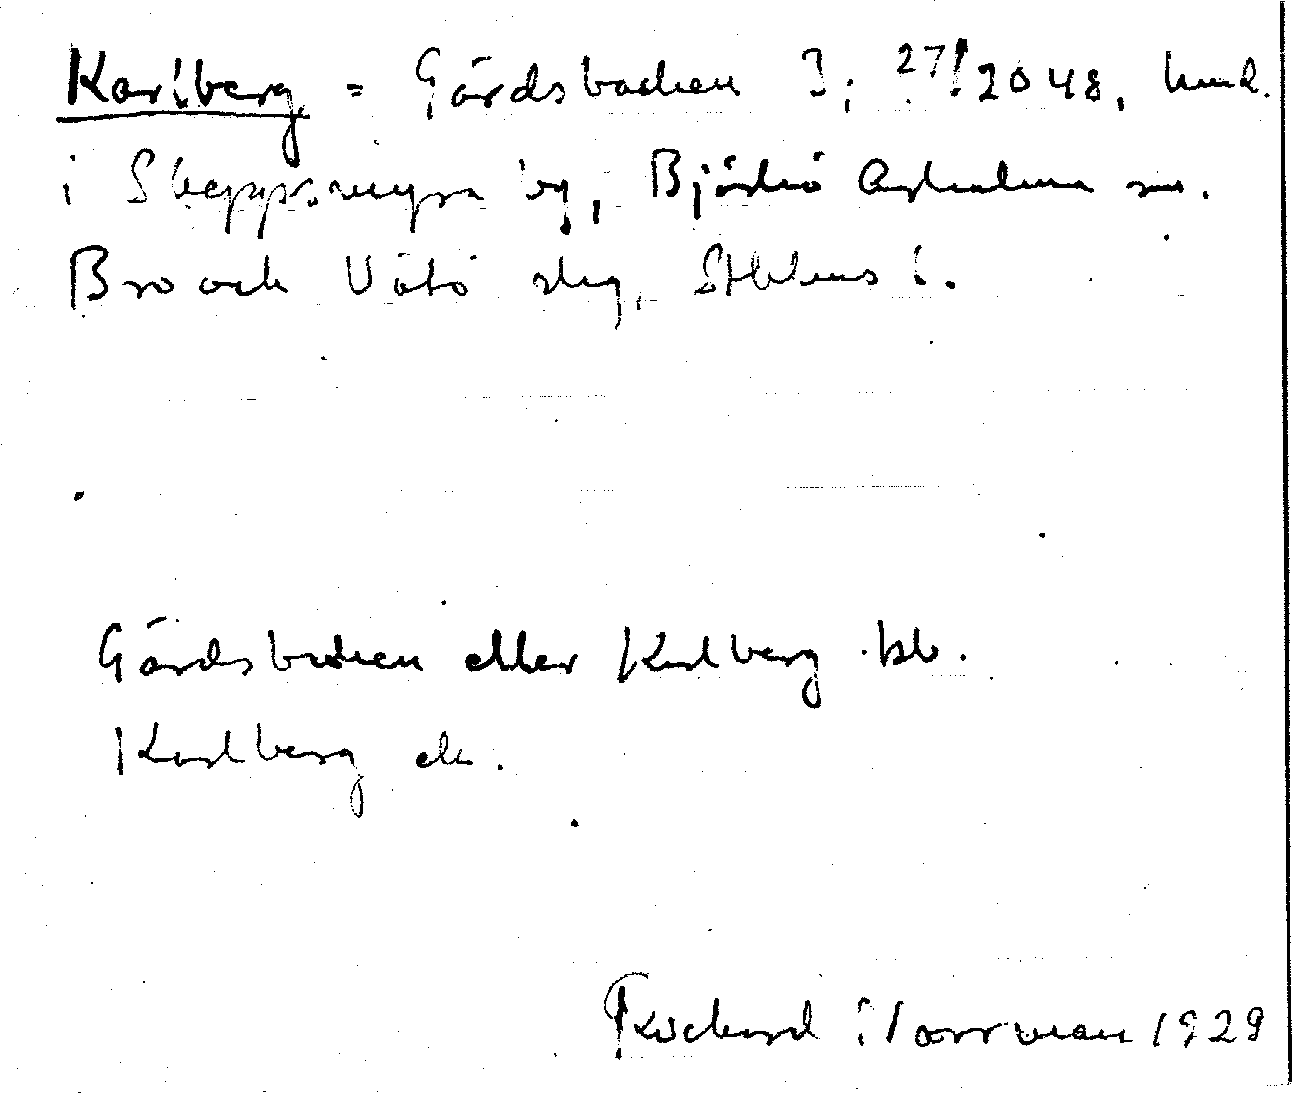 Karlberg = Gärdsbacken 3; 27/2048, hmd.
i Skeppsmyra by, Björkö Arholma sn.
Bro och Vätö skg, Sthlms l.
Gärdsbacken eller Karlberg kb.
Karlberg ek.
Rickard Norrman 1929